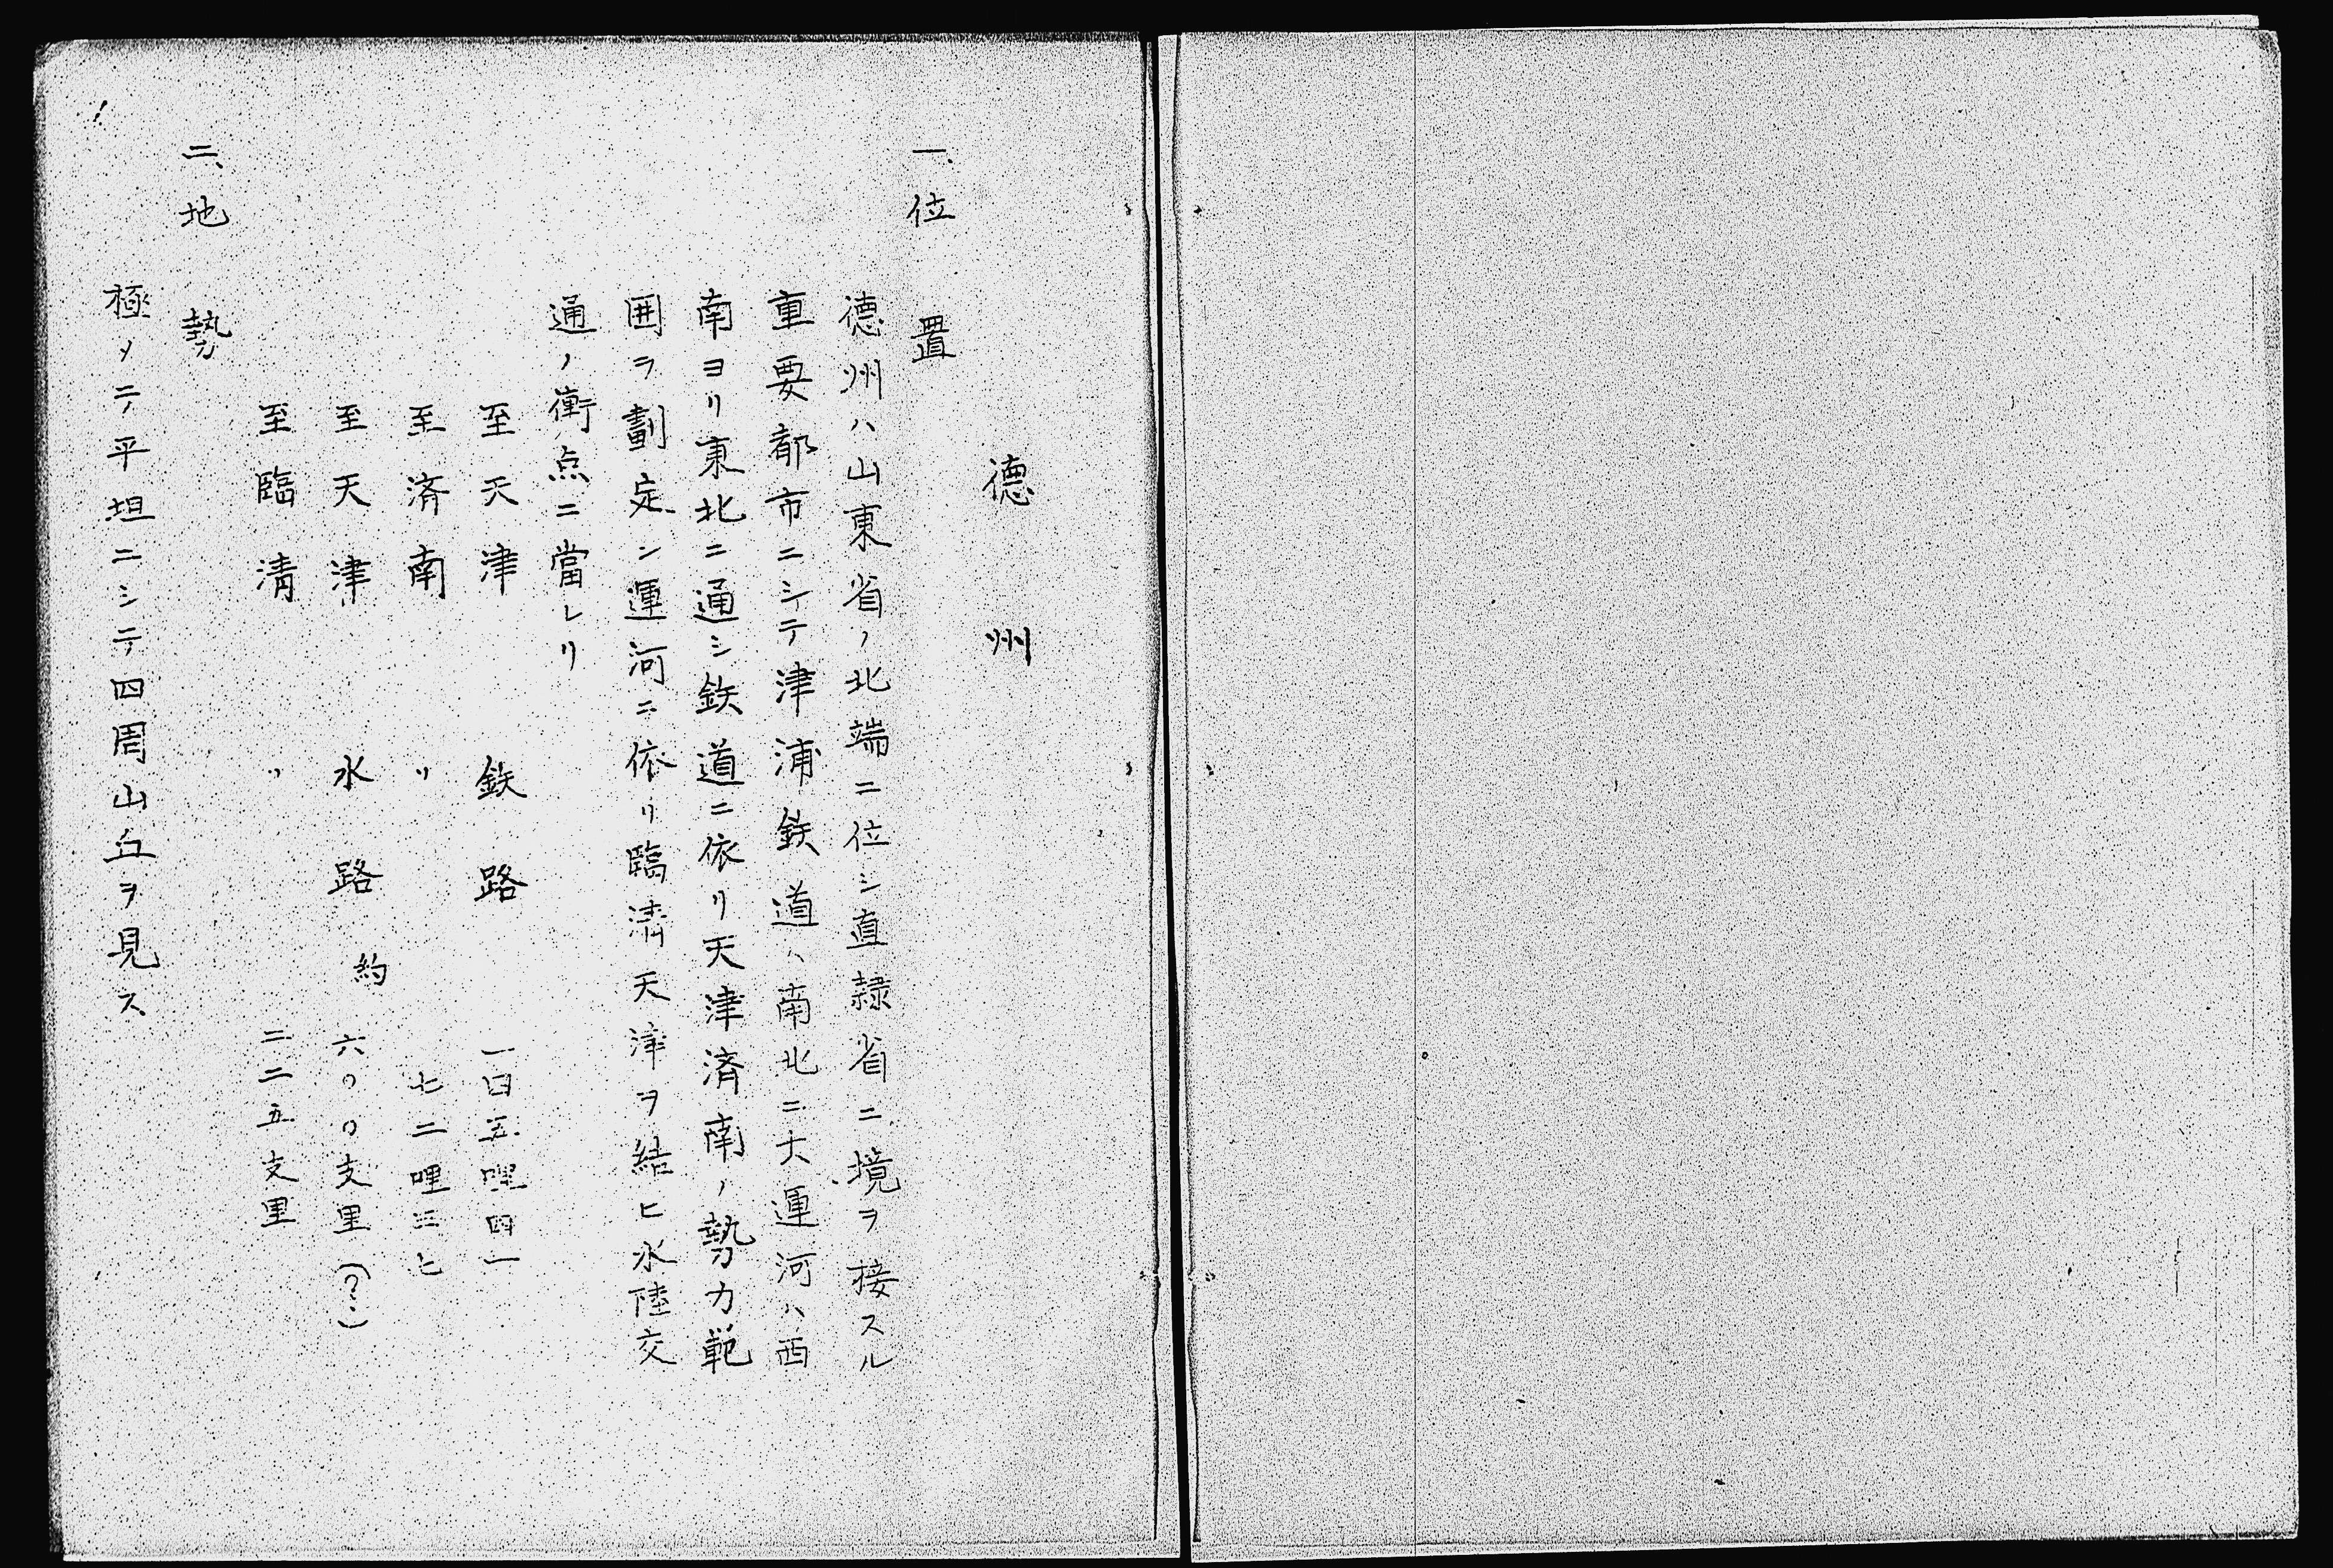 德州
一、位置
德州ハ山東省ノ北端ニ位シ直隷省ニ境ヲ接スル
重要都市ニシテ津浦鉄道ハ南北ニ大運河ハ西
南ヨリ東北ニ通シ鉄道ニ依リ天津済南ノ勢力範
囲ヲ劃定シ運河ニ依リ臨清天津ヲ結ヒ水陸交
通ノ衝点ニ當レリ
至天津 鉄路 一四五哩四一
至済南 〃 七二哩三七
至天津 水路 約六〇〇支里(?)
至臨清 〃 二二五支里
二、地勢
極メテ平坦ニシテ四周山丘ヲ見ス